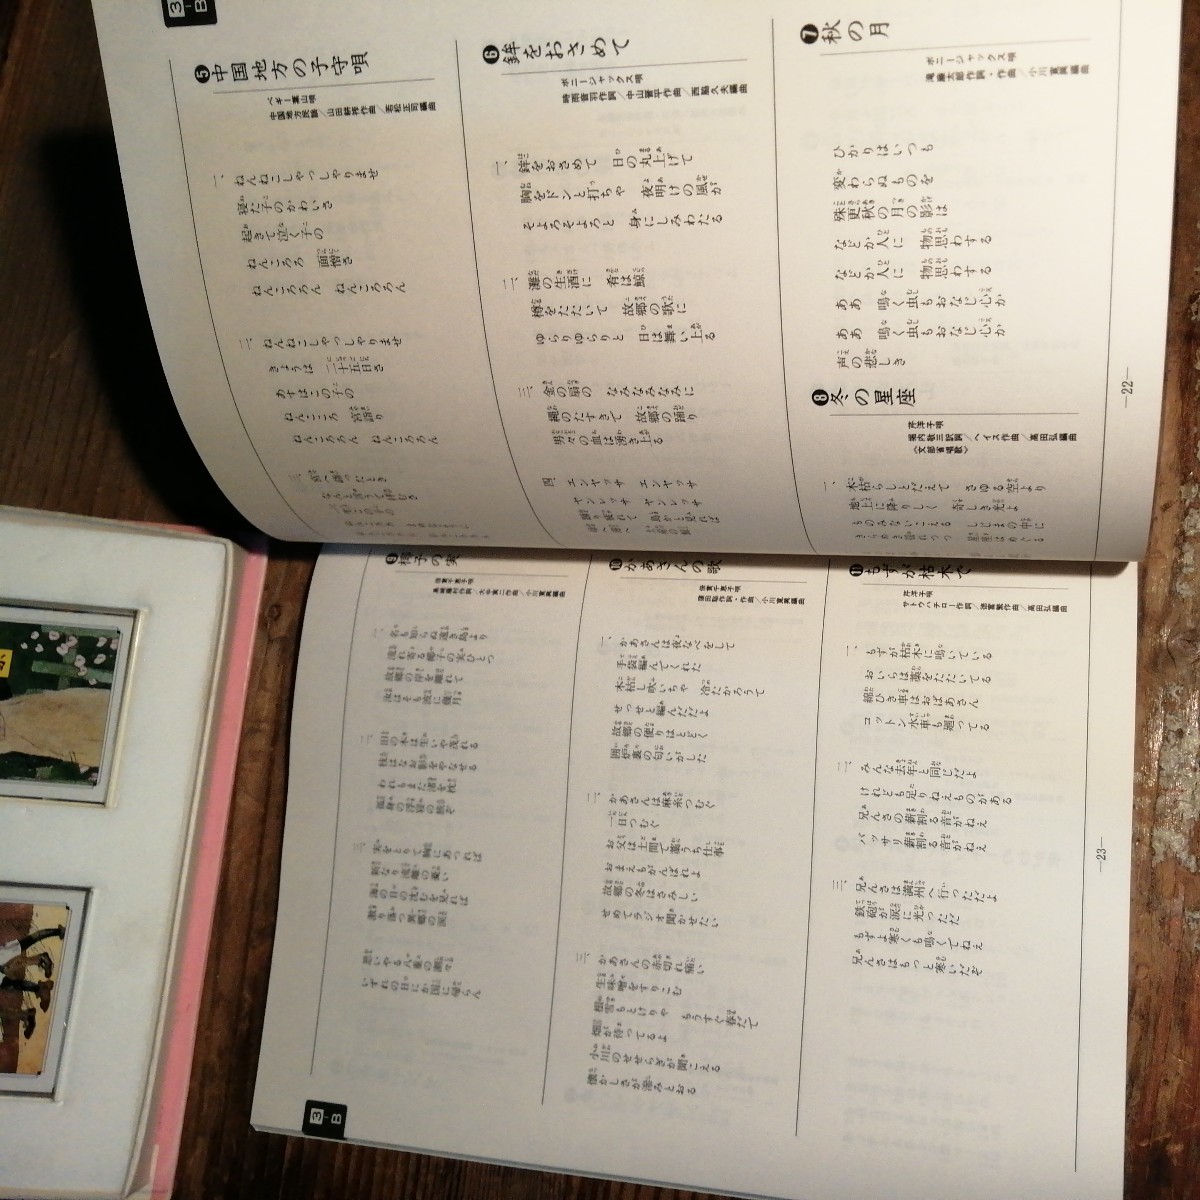 3-B
❺中国地方の子守唄
ペギー葉山唄
中国地方民謡／山田耕筰作曲／若松正司編曲
一、ねんねこしゃっしゃりませ
寝た子のかわいさ
起きて泣く子の
ねんころろ　面憎さ
ねんころろん　ねんころろん
二、ねんねこしゃっしゃりませ
きょうは　二十五日さ
あすはこの子の
ねんころろ　宮詣り
ねんころろん　ねんころろん
❻鉾をおさめて
ボニージャックス唄
時雨音羽作詞／中山晋平作曲／西脇久夫編曲
一、鉾をおさめて　日の丸上げて
胸をドンと打ちゃ　夜明けの風が
そよろそよろと　身にしみわたる
二、灘の生酒に　肴は鯨
樽をたたいて　故郷の歌に
ゆらりゆらりと　日は舞い上る
三、金の扇の　なみなみなみに
縄のたすきで　故郷の踊り
男々の血は湧き上る
四、エンヤッサ　エンヤッサ
ヤンレッサ　ヤンレッサ
❼秋の月
ボニージャックス唄
滝廉太郎作詞・作曲／小川寛興編曲
ひかりはいつも
変わらぬものを
殊更秋の月の影は
などか人に　物思わする
などか人に　物思わする
ああ　鳴く虫もおなじ心か
ああ　鳴く虫もおなじ心か
声の悲しき
❽冬の星座
芹洋子唄
堀内敬三訳詞／ヘイス作曲／高田弘編曲
〈文部省唱歌〉
一、木枯らしとだえて　さゆる空より
地上に降りしく　奇しき光よ
ものみないこえる　しじまの中に
きらめき揺れつつ　星座はめぐる
—22—
❾椰子の実
倍賞千恵子唄
島崎藤村作詞／大中寅二作曲／小川寛興編曲
一、名も知らぬ遠き島より
流れ寄る椰子の実ひとつ
故郷の岸を離れて
汝はそも波に幾月
二、旧の木は生いや茂れる
枝はなお影をやなせる
われもまた渚を枕
孤身の浮寝の旅ぞ
三、実をとりて胸にあつれば
新たなり流離の憂い
海の日の沈むを見れば
激り落つ異郷の涙
思いやる八重の潮々
いずれの日にか国に帰らん
❿かあさんの歌
倍賞千恵子唄
窪田聡作詞・作曲／小川寛興編曲
一、かあさんは夜なべをして
手袋編んでくれた
木枯し吹いちゃ　冷たかろうて
せっせと編んだだよ
故郷の便りはとどく
囲炉裏の匂いがした
二、かあさんは麻糸つむぐ
一日つむぐ
お父は土間で藁うち仕事
おまえもがんばれよ
故郷の冬はさみしい
せめてラジオ聞かせたい
三、かあさんの赤切れ痛い
生味噌をすりこむ
根雪もとけりゃ　もうすぐ春だで
畑が待ってるよ
小川のせせらぎが聞こえる
懐かしさが滲みとおる
⓫もずが枯木で
芹洋子唄
サトウハチロー作詞／徳富繁作曲／高田弘編曲
一、もずが枯木に鳴いている
おいらは藁をたたいてる
綿ひき車はおばあさん
コットン水車も廻ってる
二、みんな去年と同じだよ
けれども足りねえものがある
兄さの薪割る音がねえ
バッサリ薪割る音がねえ
三、兄さは満州へ行っただよ
鉄砲が涙に光っただ
もずよ寒くも鳴くでねえ
兄さはもっと寒いだぞ
3-B
—23—